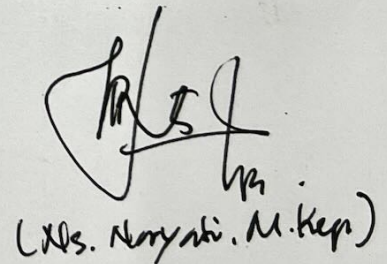 (Ns. Nuryati, M.Kep)